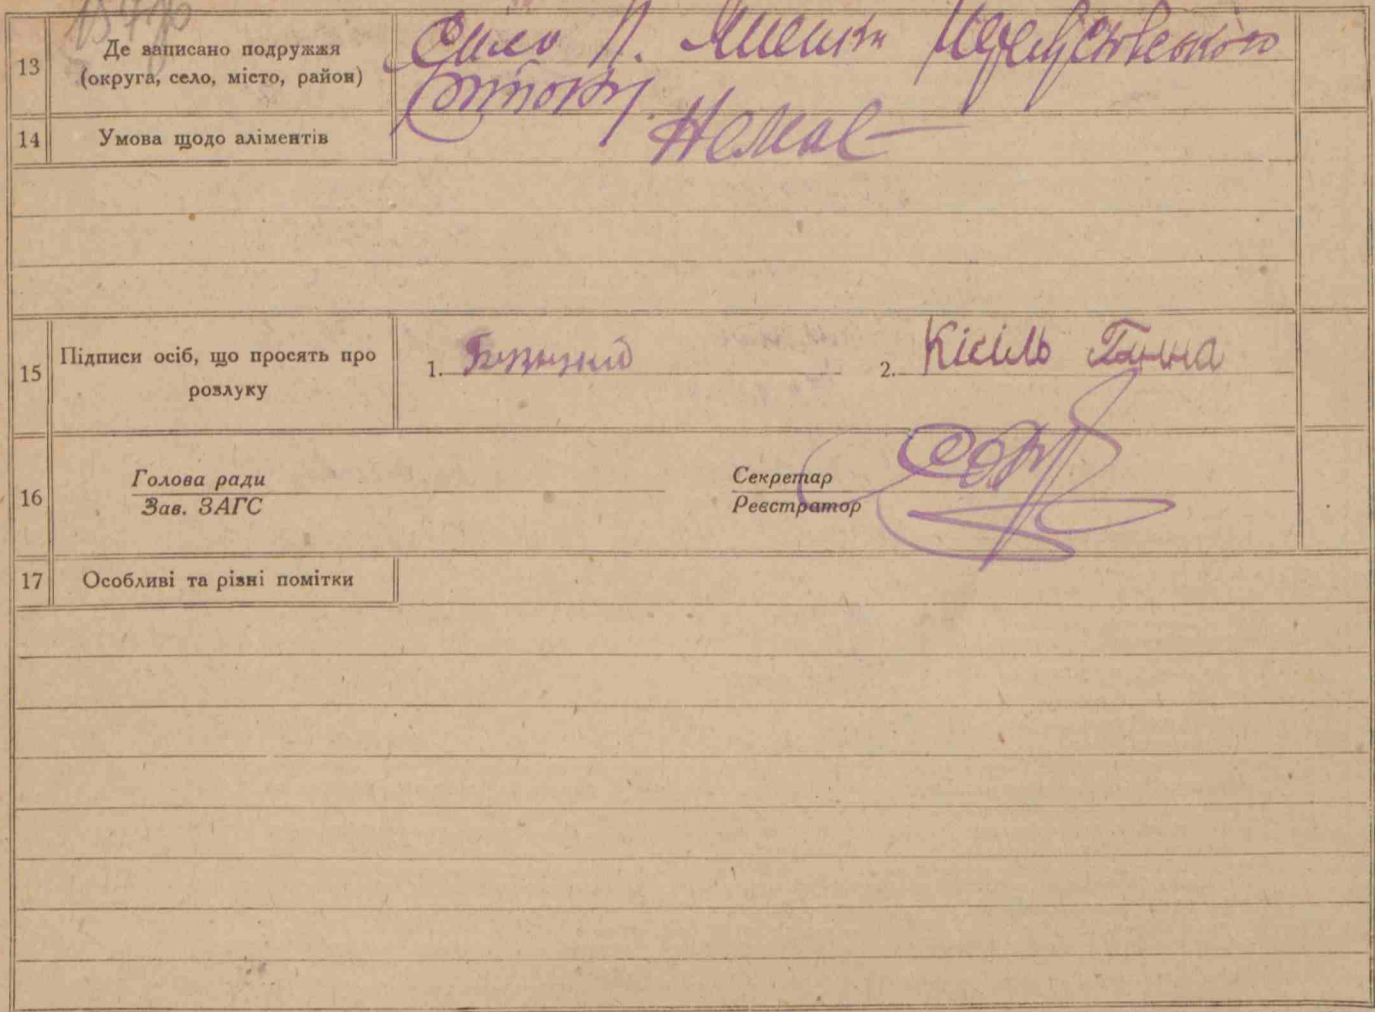 13
Де записано подружжя
(округа, село, місто, район)
Село П.
округи
14
Умова щодо аліментів
Немає
15
Підписи осіб, що просять про
розлуку
1.
2. Кісіль Ганна
16
Голова ради
Зав. ЗАГС
Секретар
Реєстратор
17
Особливі та різні помітки